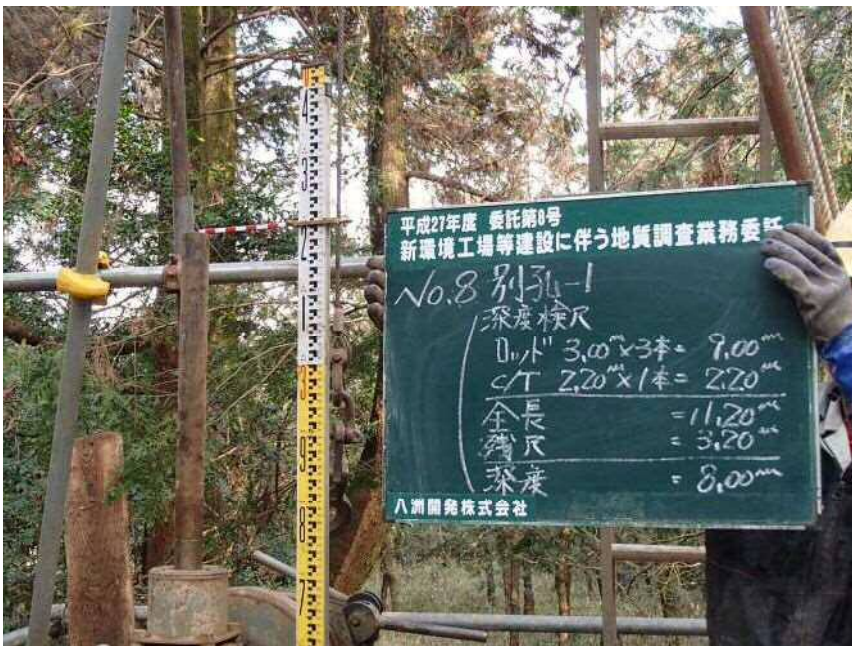 平成27年度 委託第8号
新環境工場等建設に伴う地質調査業務委託
No.8 別孔-1
深度検尺
ロッド 3.00m×3本= 9.00m
C/T 2.20m×1本= 2.20m
全長 =11.20m
残尺 = 3.20m
深度 = 8.00m
八洲開発株式会社
4
3
2
1
3
9
8
7